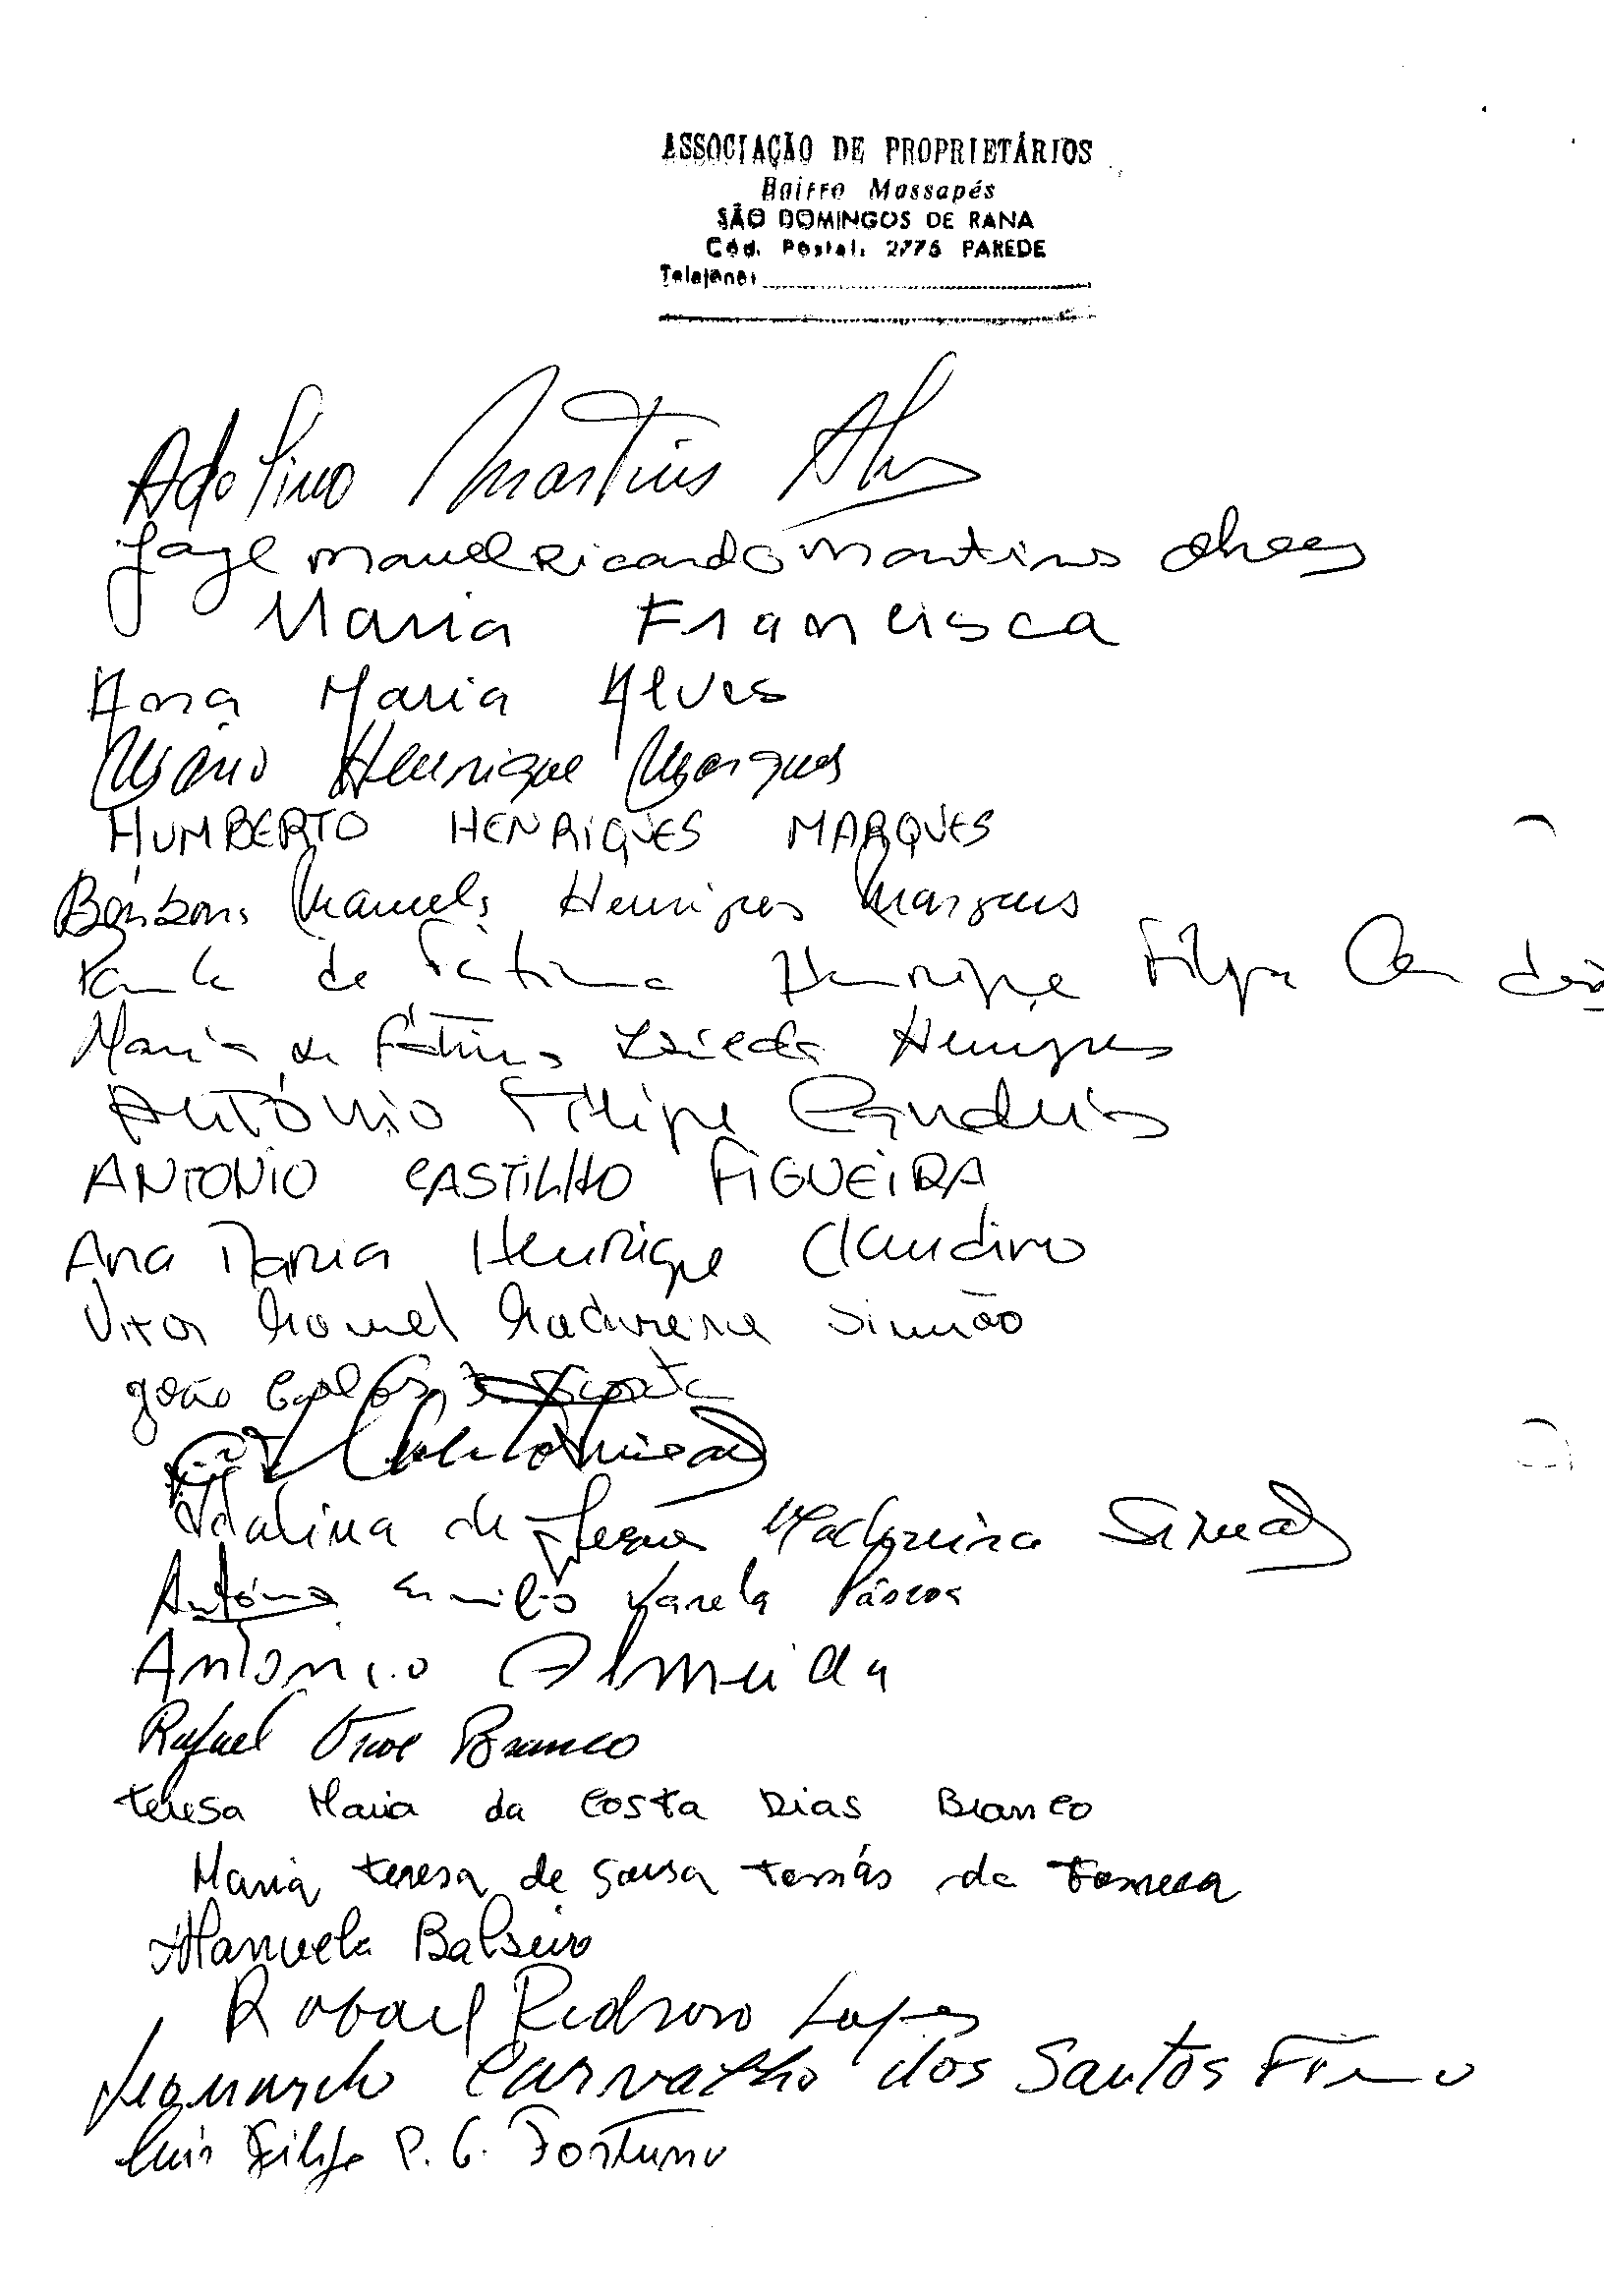 ASSOCIAÇÃO DE PROPRIETÁRIOS
Bairro Massapés
SÃO DOMINGOS DE RANA
Cód. Postal. 2775 PAREDE
Telefone:
Adolino Martins
Jorge Manuel Ricardo Martins Alves
Maria Francisca
Ana Maria Alves
Mário Henrique Marques
HUMBERTO HENRIQUES MARQUES
Manuela Henriques Marques
Paula de Fátima Henrique Filipe
Maria de Fátima Henriques
António Filipe Candeias
ANTONIO CASTILHO FIGUEIRA
Ana Maria Henrique Claudino
Vitor Manuel Madureira Simão
João Carlos
Idalina de Jesus Madureira Simão
António Emilio Varela Páscoa
António Almeida
Rafael Branco
Teresa Maria da Costa Dias Branco
Maria Teresa de Sousa Tomás da Fonseca
Manuela Balseiro
Rafael Pedroso Lopes
Leonardo Carvalho dos Santos Firmo
Luis Filipe P. G. Fortuna